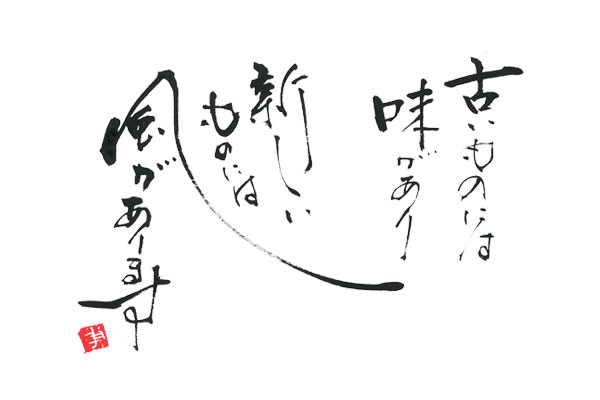 古いものには
味があり
新しい
ものには
風があります